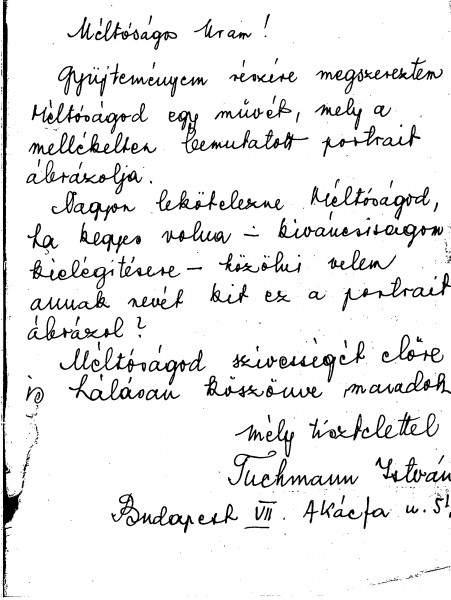 Méltóságos Uram!
Gyüjteményem részére megszereztem
Méltóságod egy művét, mely a
mellékelten bemutatott portrait
ábrázolja.
Nagyon lekötelezne Méltóságod,
ha kegyes volna – kiváncsiságom
kielégitésere – közölni velem
annak nevét kit ez a portrait
ábrázol?
Méltóságod szivességét előre
is hálásan köszönve maradok
mély tisztelettel
Tuchmann István
Budapest VII. Akácfa u.